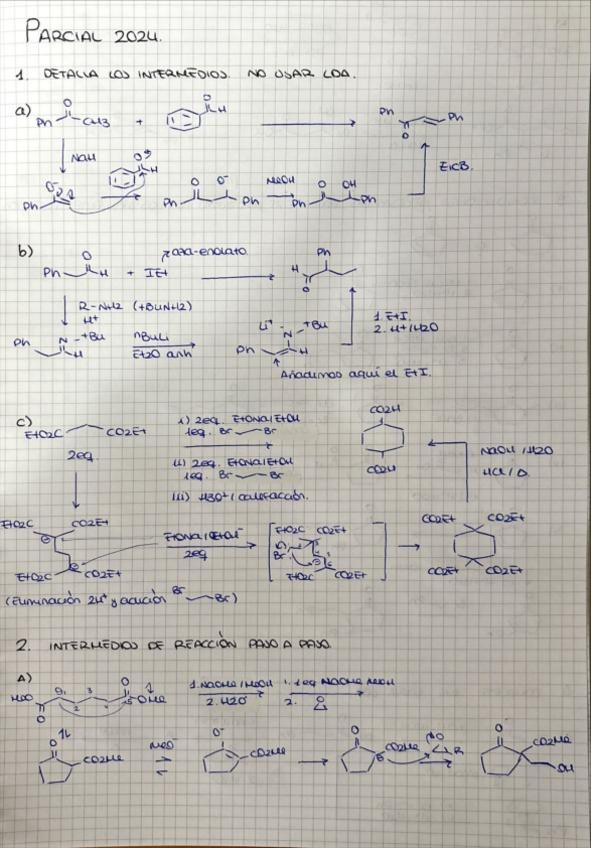 PARCIAL 2024.
1. DETALLA LOS INTERMEDIOS. NO USAR LDA.
a) Ph O CH3 + O H Ph O Ph
NaH O H E1cB.
O⁻ Ph O O⁻ Ph Ph MeOH O OH Ph Ph
b) aza-enolato
Ph O H + IEt Ph H O
R-NH2 (+BuNH2)
H+
Ph N +Bu H nBuLi Et2O anh Li+ N +Bu Ph H 1. EtI. 2. H+/H2O
Añadimos aquí el EtI.
c) EtO2C CO2Et i) 2eq. EtONa/EtOH CO2H
2eq. 1eq. Br Br
ii) 2eq. EtONa/EtOH CO2H NaOH/H2O
1eq. Br Br HCl/Δ.
iii) H3O+/calefacción.
EtO2C CO2Et EtONa/EtOH EtO2C CO2Et CO2Et CO2Et
2eq Br
EtO2C CO2Et EtO2C CO2Et CO2Et CO2Et
(Eliminación 2H+ y adición Br Br)
2. INTERMEDIOS DE REACCIÓN PASO A PASO.
A) MeO O 1 2 3 4 5 O OMe 1. NaOMe/MeOH 1. 1eq NaOMe MeOH
2. H2O 2. O
O CO2Me MeO⁻ O⁻ CO2Me O CO2Me O R O CO2Me OH